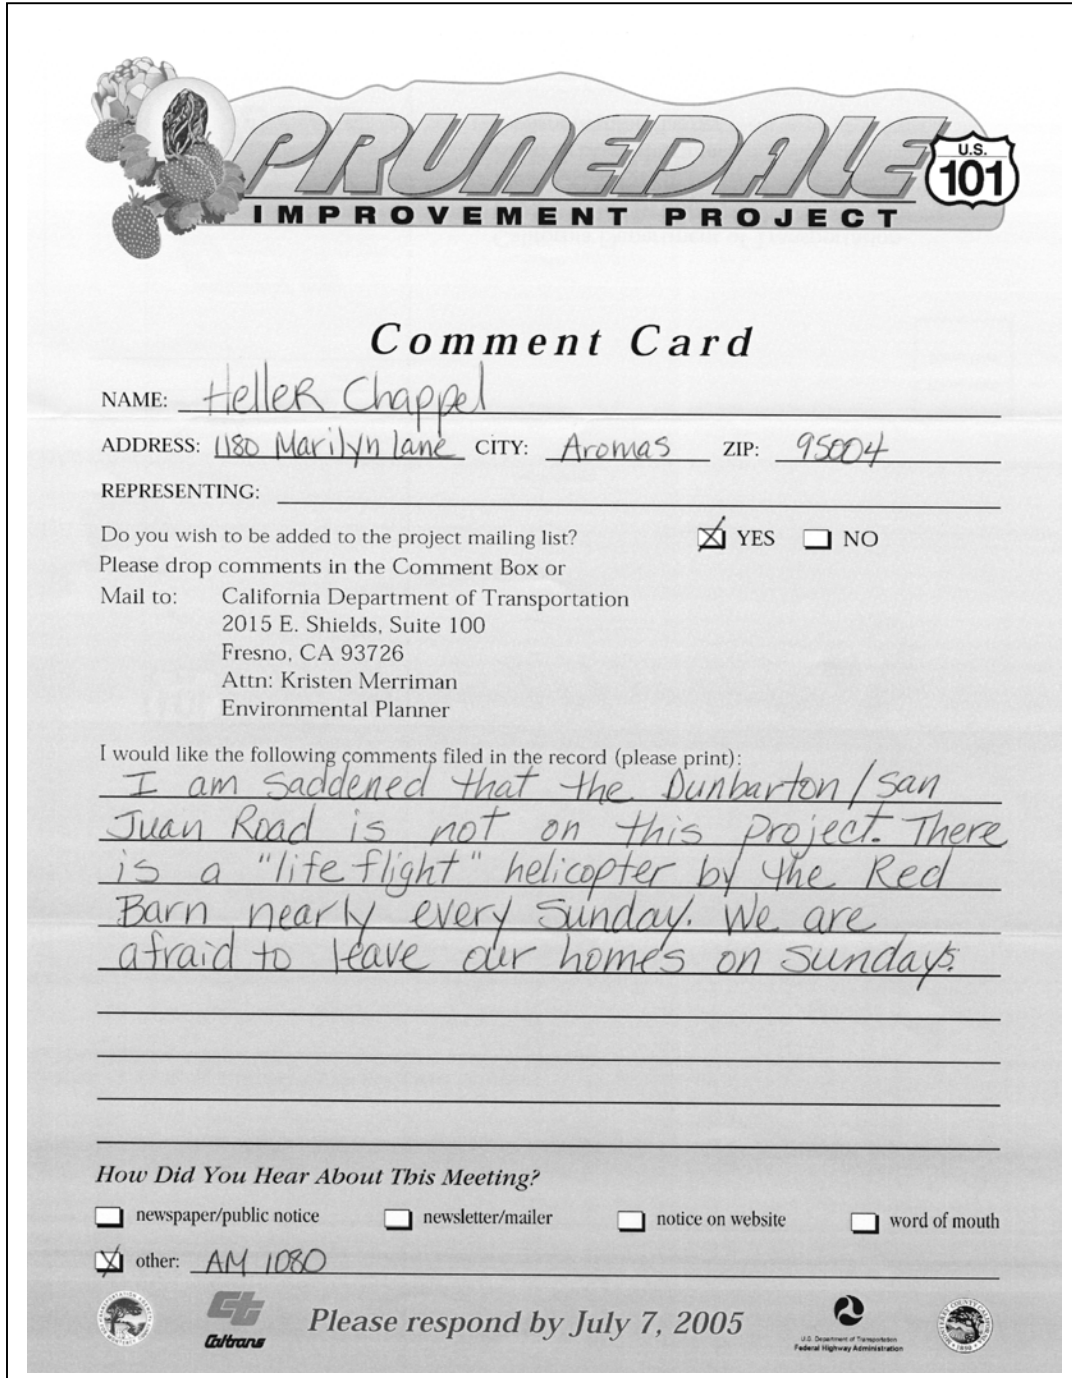 PRUNEDALE
U.S.
101
IMPROVEMENT PROJECT
Comment Card
NAME: Heller Chappel
ADDRESS: 1180 Marilyn lane CITY: Aromas ZIP: 95004
REPRESENTING:
Do you wish to be added to the project mailing list? YES NO
Please drop comments in the Comment Box or
Mail to: California Department of Transportation
2015 E. Shields, Suite 100
Fresno, CA 93726
Attn: Kristen Merriman
Environmental Planner
I would like the following comments filed in the record (please print):
I am saddened that the Dunbarton/San
Juan Road is not on this project. There
is a "life flight" helicopter by the Red
Barn nearly every Sunday. We are
afraid to leave our homes on Sundays.
How Did You Hear About This Meeting?
newspaper/public notice newsletter/mailer notice on website word of mouth
other: AM 1080
Caltrans
Please respond by July 7, 2005
U.S. Department of Transportation
Federal Highway Administration